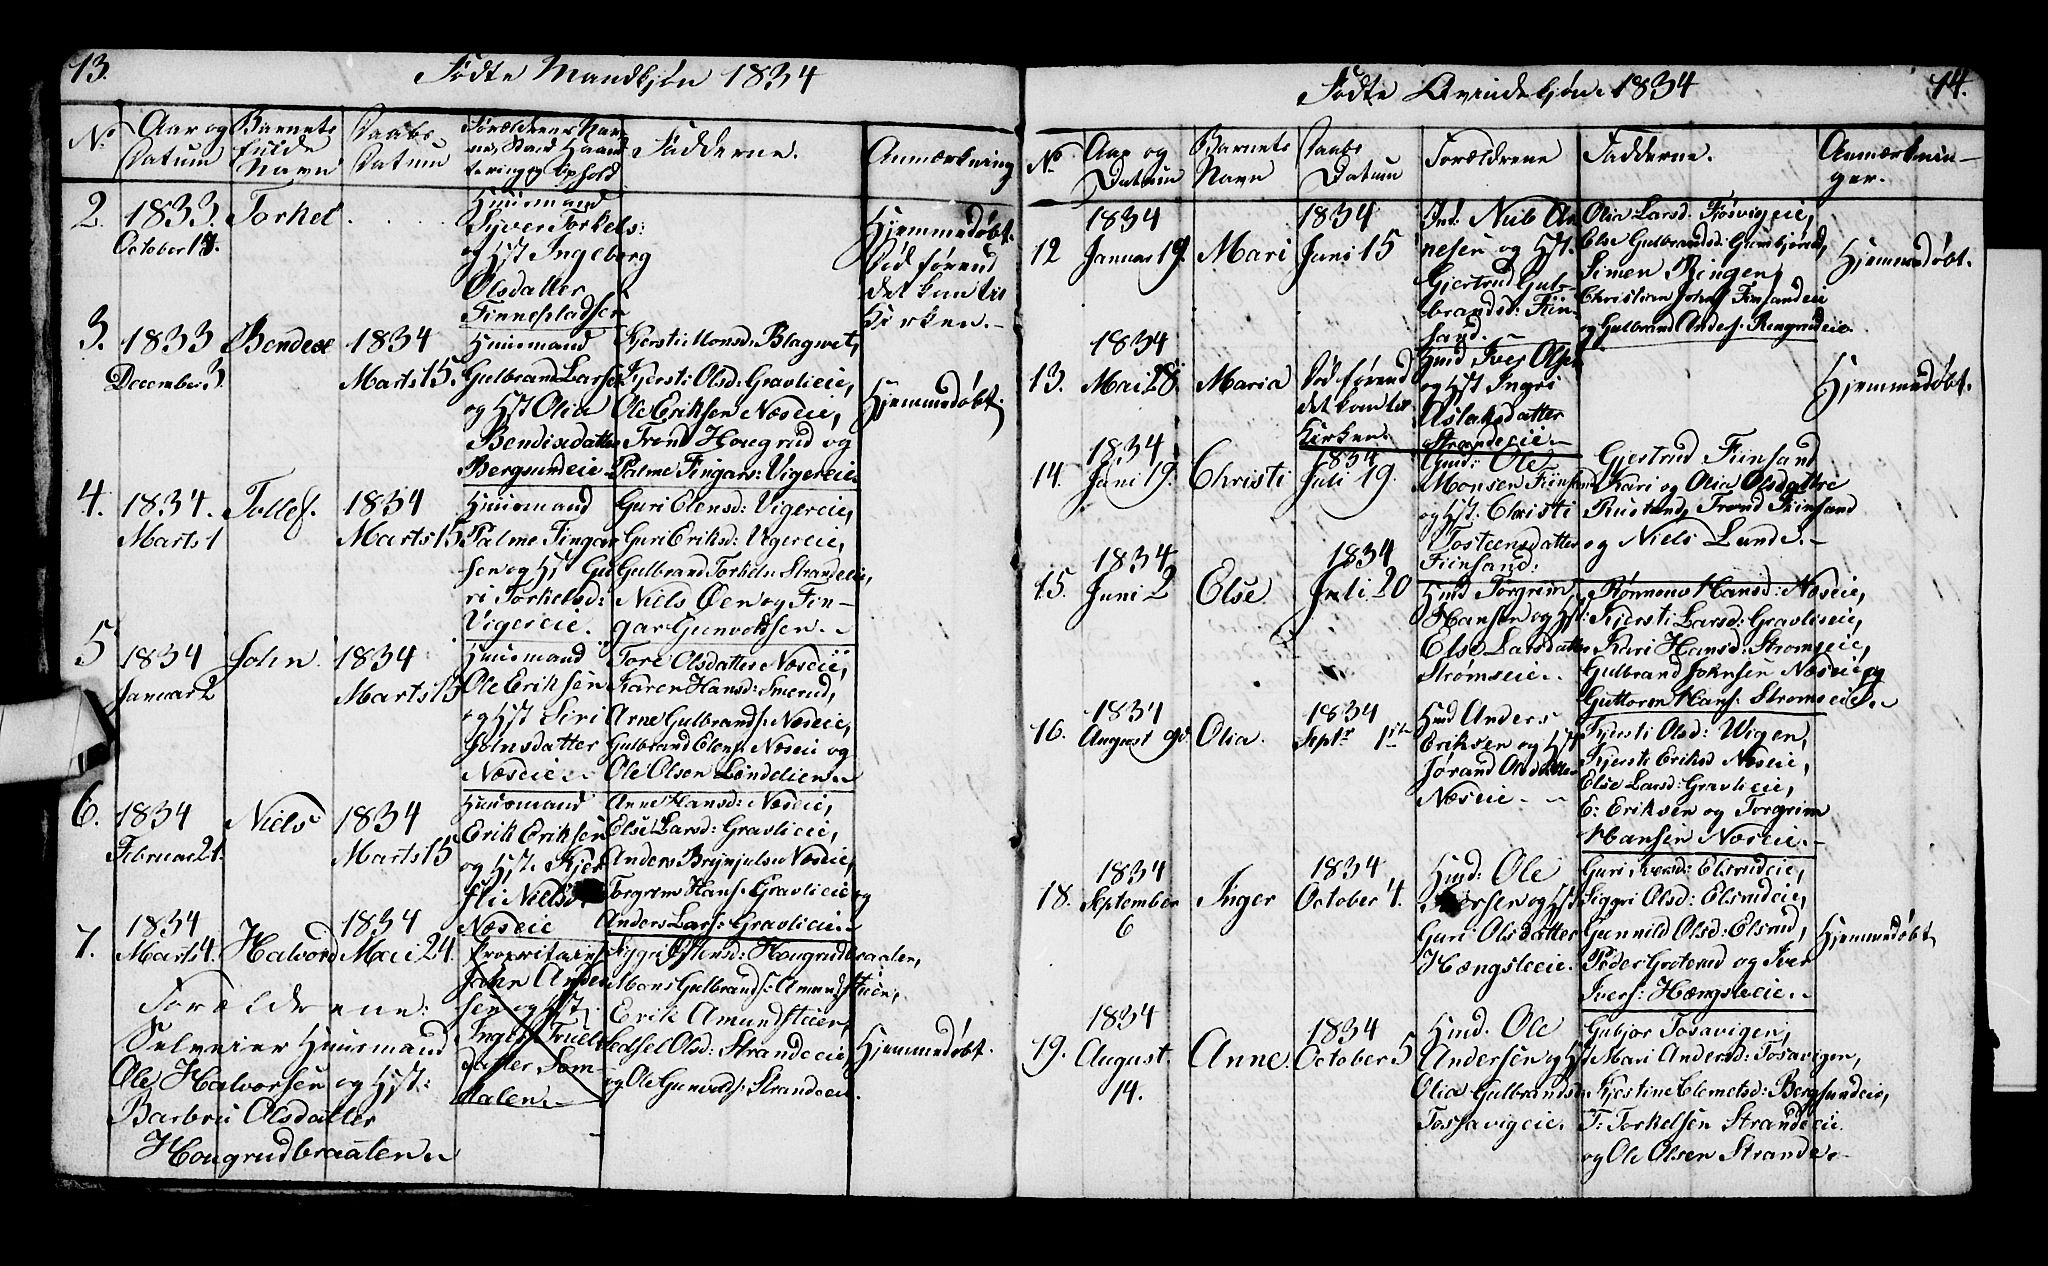 13.
Födte Mandkjön 1834
No
Aar og
Datum
Barnets
fulde
Navn
Daabs-
Datum
Forældrenes Nav-
ne, Stand Haand
tering og Ophold
Fadderne.
Anmærkning
2.
1833.
October 17.
Torkel
Huusmand
Syver Torkels:
og Hst Ingeborg
Olsdatter
Finnepladsen
Hjemmedøbt.
Död førend
det kom til
Kirken.-
3.
1833
December 3.
Bendixe
1834
Marts 15.
Huusmand
Gulbrand Larsen
og Hst Olia
Bendixdatter
Bergsundeie
Kjersti Monsd. Blagvet,
Kjersti Olsd: Gravlieie,
Ole Eriksen Næseie,
Trond Hougrud og
Palme Fingars: Vigereie.
Hjemmedøbt.
4.
1834.
Marts 1
Tollef.
1834
Marts 15
Huusmand
Palme Fingar
sen og Hst Gu
ri Torkelsd:
Vigereie.
Guri Elensd: Vigereie,
Guri Eriksd: Vigereie,
Gulbrand Torkels Strandeeie,
Niels Øen og Fin-
gar Gunvoldsen.-
5
1834
Januar 2
John.
1834
Marts 15
Huusmand
Ole Eriksen
og Hst Siri
Johnsdatter
Næseie.-
Tore Olsdatter Næseie,
Karen Hansd: Smerud,
Arne Gulbrands: Næseie,
Gulbrand Elens: Næseie og
Ole Olsen Löndelien.-
6.
1834
Februar 21.
Niels
1834
Marts 15
Huusmand
Erik Eriksen
og Hst. Kjer
sti Nielsd
Næseie
Anne Hansd: Næseie,
Else Larsd: Gravlieie,
Anders Brynjulsen Næseie,
Torgrim Hans: Gravlieie og
Anders Lars: Gravlieie.-
7.
1834
Marts 4.
Halvord
1834
Mai 24.
Propritair
John Ander
sen og Hst.
Inger Truels
datter Som-
dalen.-
Siggri Ostensd: Hougrudbraaten,
Mons Gulbrands: Amundstuen,
Erik Amundstuen,
Sedsel Olsd: Strandeeie,
og Ole Gunvolds: Strandeeie.
Hjemmedøbt.
Foreldrene:
Selveier Huusmand
Ole Halvorsen og Hst:
Barbru Olsdatter
Hougrudbraaten.-
14.
Födte Qvindekjön 1834
No
Aar og
Datum
Barnets
Navn
Daabs
Datum
Forældrene
Fadderne.
Anmærknin-
ger.
12
1834
Januar 19.
Mari
1834
Juni 15
Ind. Nub Ar
nesen og Hst.
Gjertrud Gul-
brandsd: Fiin-
sand.-
Olia Larsd. Fösvigeie,
Else Gulbrandsd: Gumbjörud,
Simen Ringen,
Christian Johns Finsandeie
og Gulbrand Anders: Rengrudeie
Hjemmedøbt.
13.
1834
Mai 28.
Maria
Död førend
det kom til
Kirken.
Hmd Iver Olsen
og Hst Ingri
Aslaksdatter
Strandeeie.-
Hjemmedøbt.
14.
1834
Juni 19.
Christi
1834
Juli 19.
Gmd: Ole
Monsen Fiinsand
og Hst: Christi
Tosteensdatter
Fiinsand:
Gjertrud Fiinsand
Kari og Olia Olsdattre
Rustand, Trond Fiinsand
og Niels Lunde.-
15.
1834
Juni 2
Else.
1834
Juli 20
Hmd Torgrim
Hansen og Hst:
Else Larsdatter
Strömseie.-
Rønnous Hansd: Næseie,
Kjersti Larsd: Gravlieeie,
Kari Hansd: Strömseie,
Gulbrand Johnsen Næseie og
Guttorm Hans: Strömseie.-
16.
1834
August 98
Olia.
1834
Septr 1ste
Hmd Anders
Eriksen og Hst
Jörand Olsdatter
Næseie.-
Kjersti Olsd: Wigen,
Kjersti Eriksd Næseie,
Else Larsd: Gravlieie,
E: Eriksen og Torgrim
Hansen Næseie.-
18.
1834
September
6
Inger
1834
October 4.
Hmd: Ole
Iversen og Hst
Guri Olsdatter
Hængsleeie.
Guri Iversd: Elsrudeie,
Siggri Olsd: Elsrudeie,
Gunnild Olsd: Elsrud,
Peder Groterud og Iver
Ivers: Hængsleeie.-
Hjemmedøbt
19.
1834
August.
14.
Anne.
1834
October 5
Hmd. Ole
Andersen og Hst
Olia Gulbrandsd
Tossavigeie.
Gubjor Tosavigen,
Mari Andersd: Tosavigen,
Kjestine Clemetsd: Bergsundeie,
T: Torkelsen Strandeeie
og Ole Olsen Strande.-